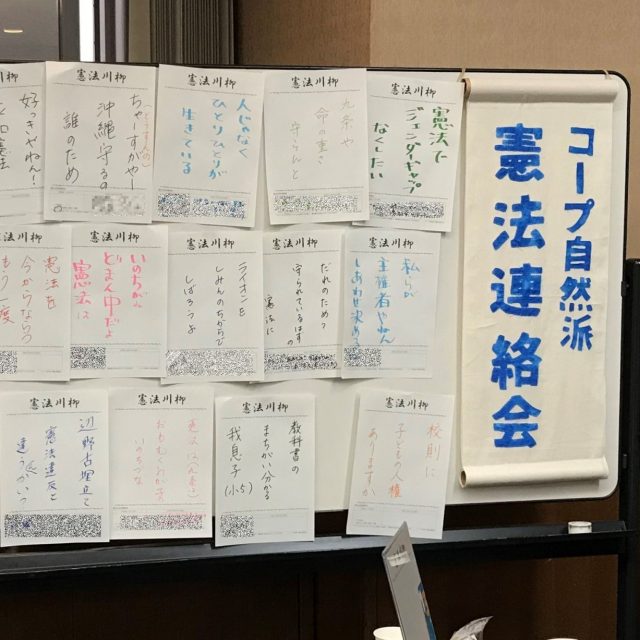 コープ自然派
憲法連絡会
憲法川柳
憲法で
ジェンダーギャップ
なくしたい
憲法川柳
九条や
命の重さ
守らんと
憲法川柳
人じゃなく
ひとりひとりが
生きている
憲法川柳
ちゃーすがやー
沖縄守るの
誰のため
川柳
好っきゃねん!
憲法川柳
私らが
主権者やねん
しあわせ決める
憲法川柳
だれのため?
守られているはずの
憲法に
憲法川柳
ライオンを
しみんのちからで
しばろうよ
憲法川柳
いのちがよ
どまん中だよ
憲法は
憲法川柳
憲法を
今からならう
もう一度
憲法川柳
校則に
子どもの人権
ありますか
憲法川柳
教科書の
まちがい分かる
我息子(小5)
憲法川柳
おもむくわが子
いのちづな
憲法川柳
辺野古埋立て
憲法違反と
違うがい?